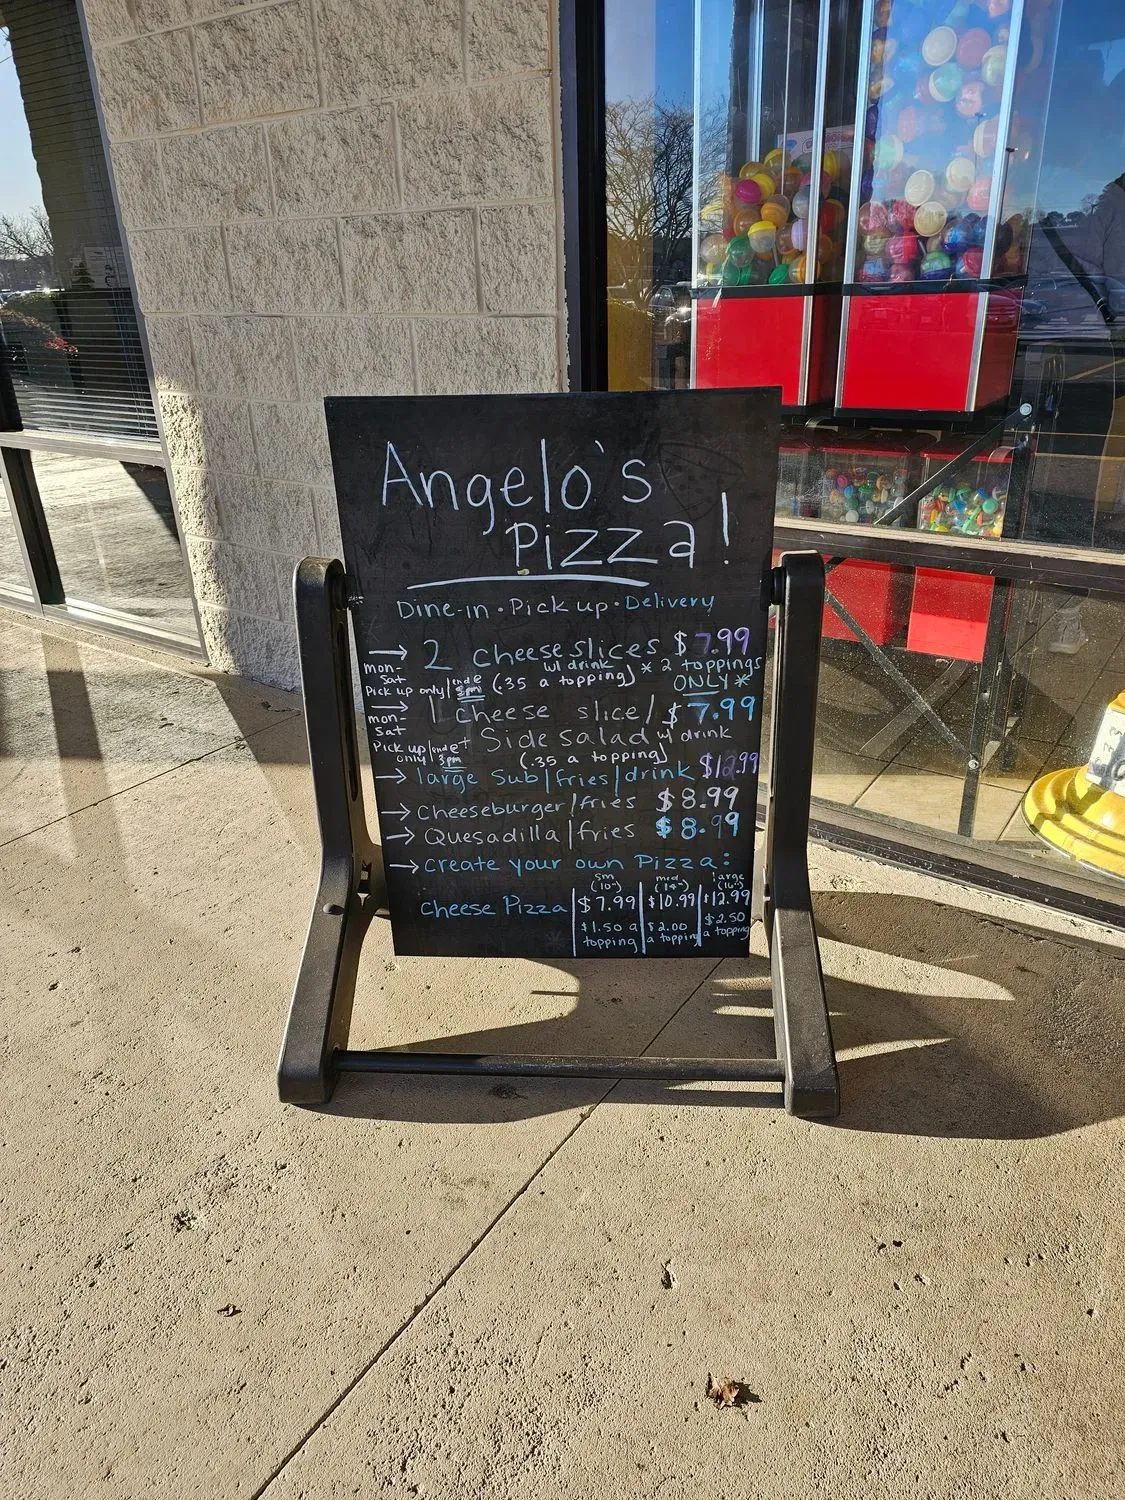 Angelo's
Pizza!
Dine-in • Pick up • Delivery
→ 2 cheese slices $7.99
mon-Sat w/ drink * 2 toppings
Pick up only (.35 a topping) ONLY *
→ 1 cheese slice/ $7.99
mon-Sat Side salad w/ drink
Pick up only 3pm (.35 a topping)
→ large Sub/fries/drink $12.99
→ Cheeseburger/fries $8.99
→ Quesadilla/fries $8.99
→ create your own Pizza:
sm (10") med (14") large (16")
Cheese Pizza $7.99 $10.99 $12.99
$1.50 a topping $2.00 a topping $2.50 a topping